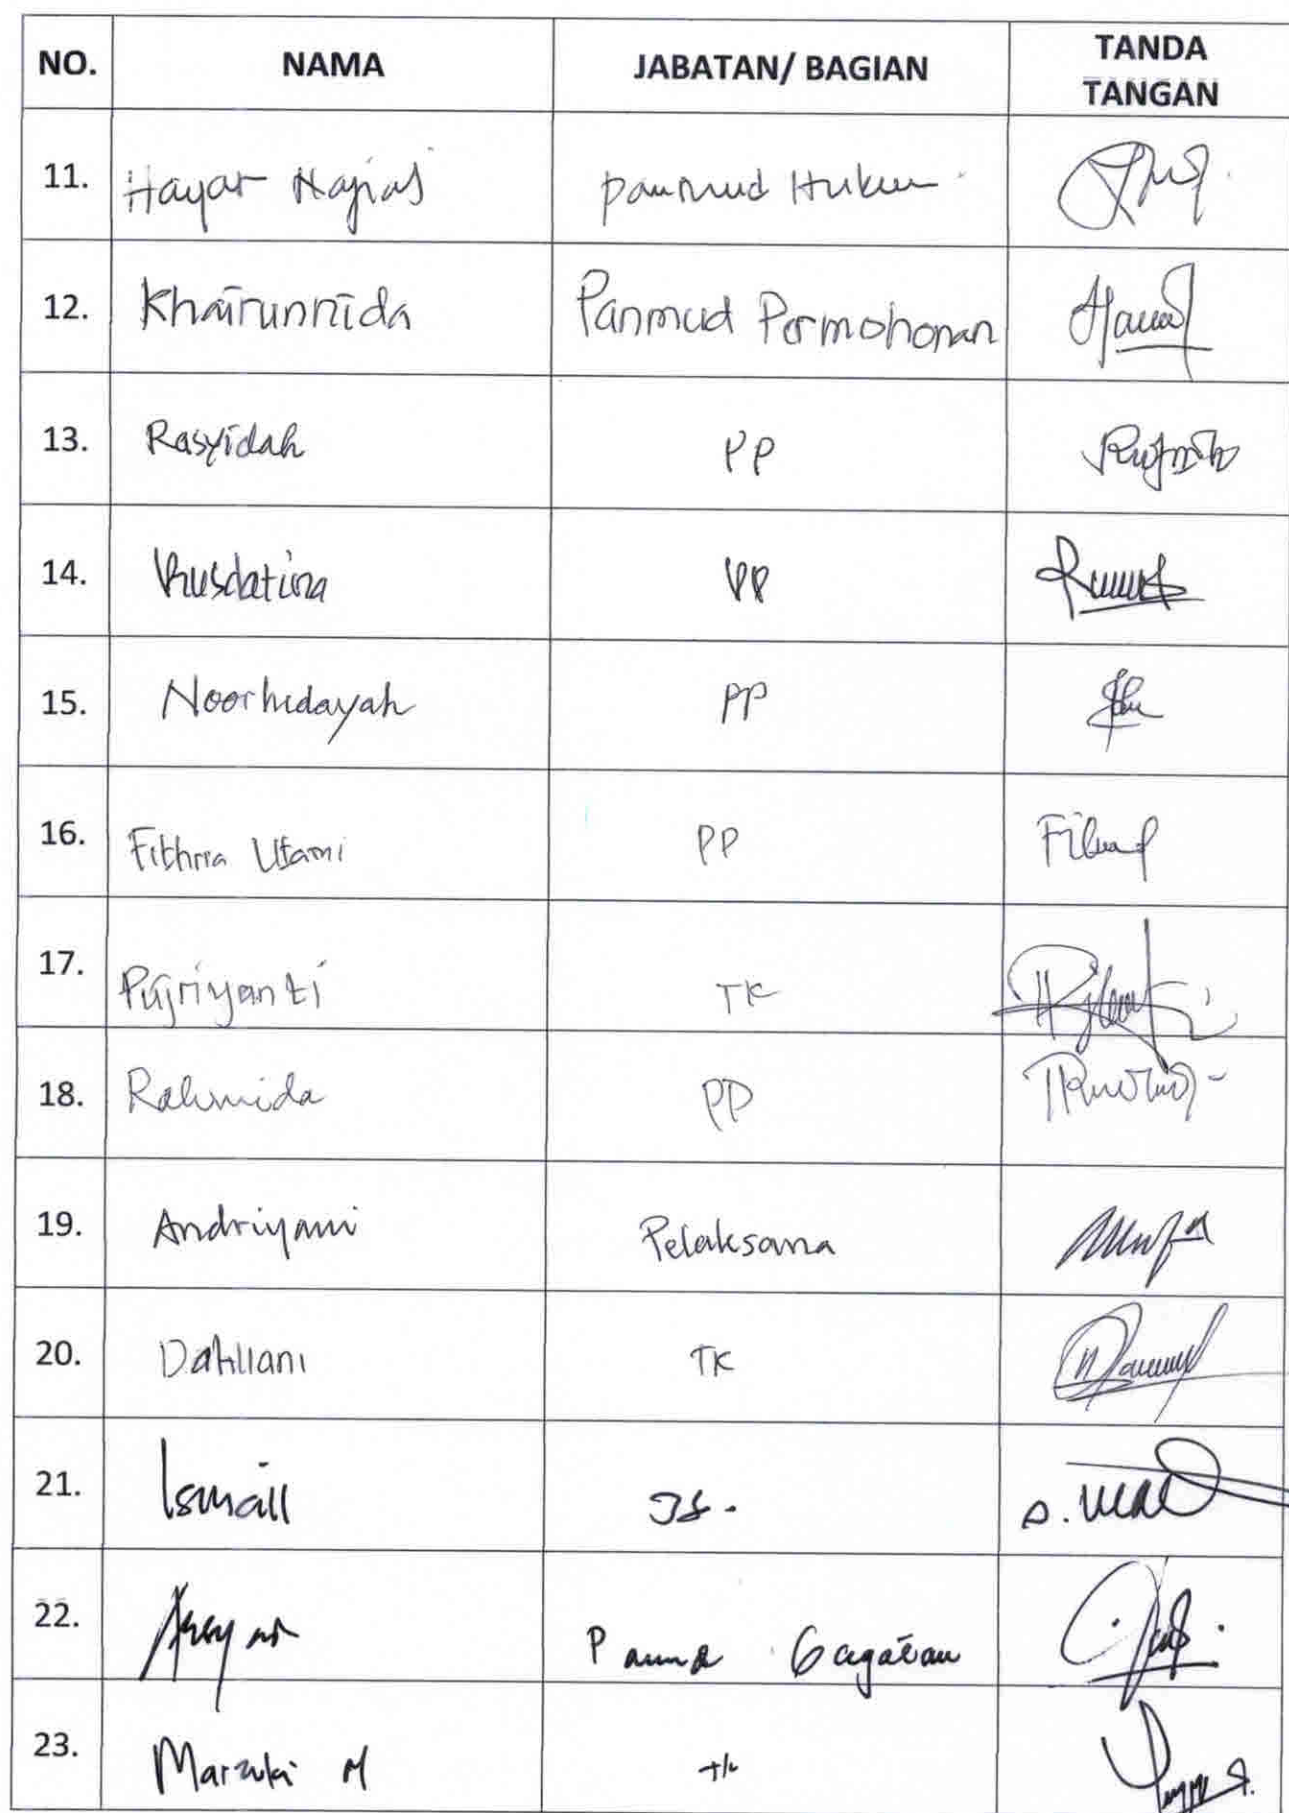 NO. NAMA JABATAN/ BAGIAN TANDA TANGAN
11. Hayat Panmud Hukum
12. Khairunnida Panmud Permohonan
13. Rasyidah PP
14. Rusdatina PP
15. Noorhidayah PP
16. Fithria Utami PP
17. Pujriyanti TK
18. Rahmida PP
19. Andriyani Pelaksana
20. Dahliani TK
21. Ismail JS.
22. Gugatan
23. Marzuki M TK